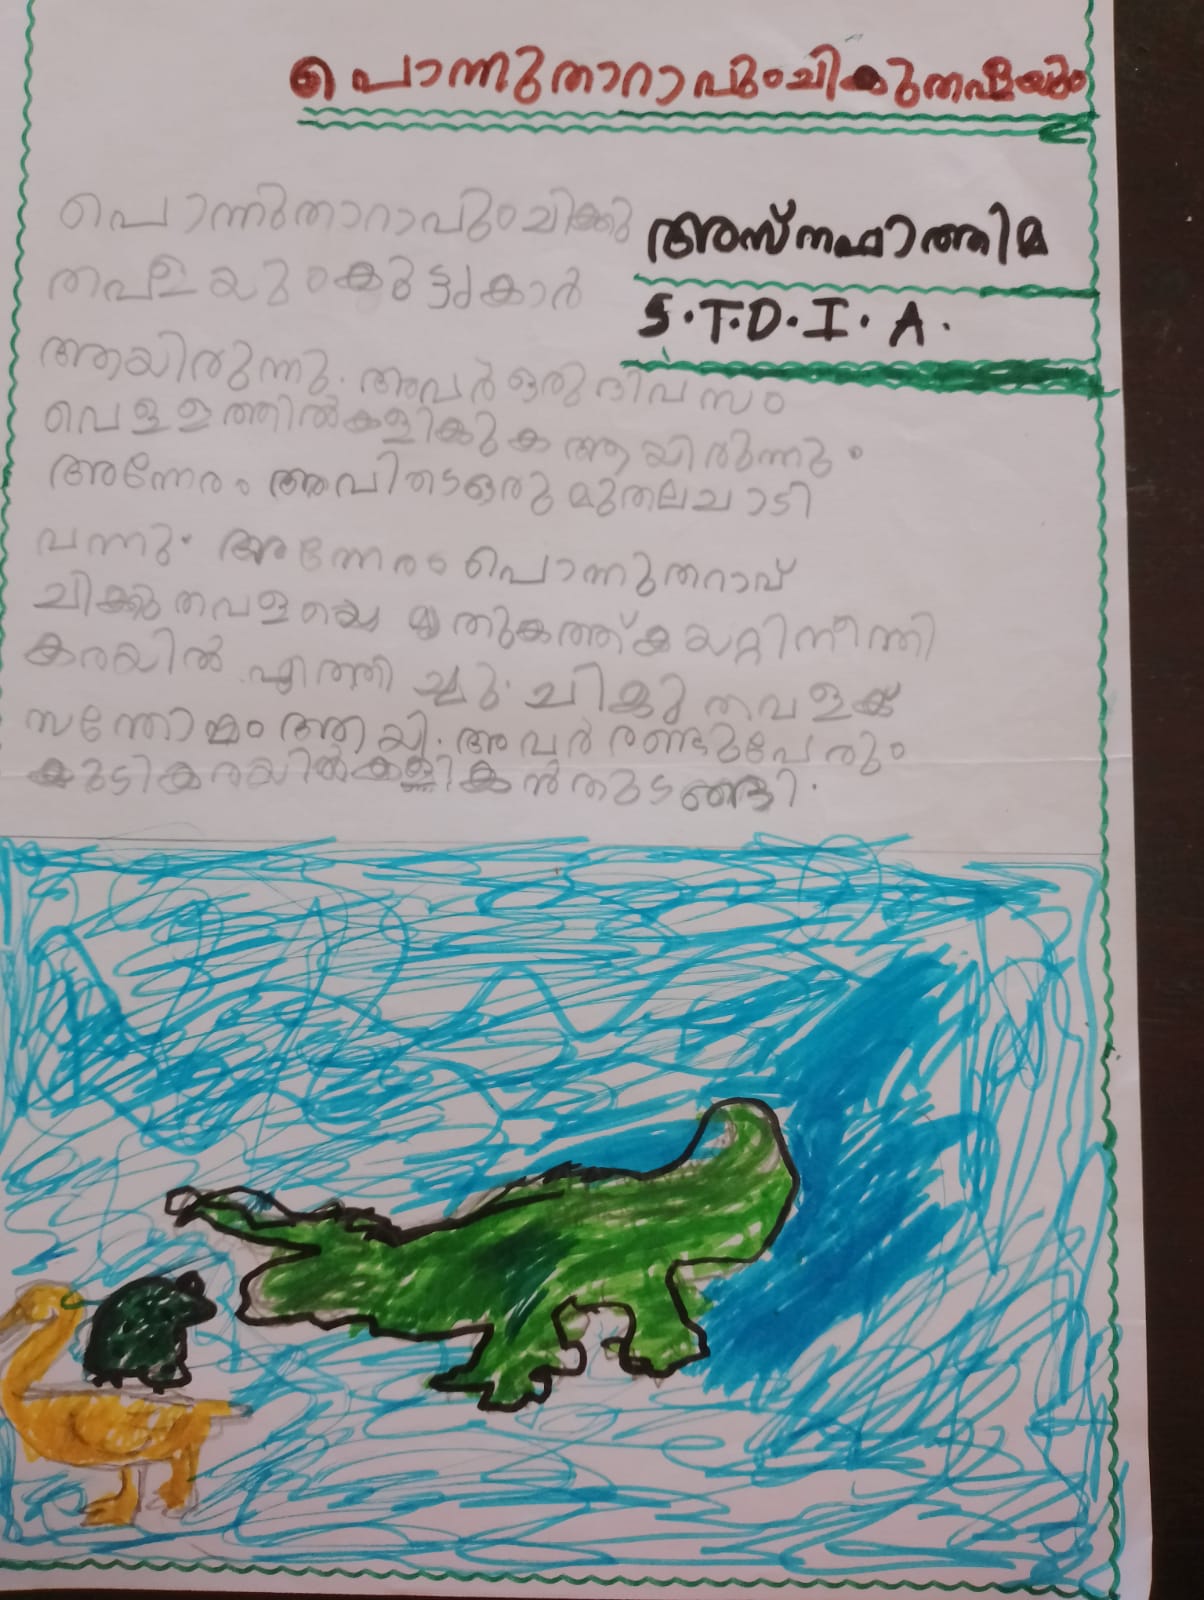 പൊന്നുതാറാവുംചിക്കുതവളയും
അസ്നഫാത്തിമ
S.T.D.I.A.
പൊന്നുതാറാവുംചിക്കു
തവളയുംകൂട്ടുകാർ
ആയിരുന്നു. അവർ ഒരു ദിവസം
വെളളത്തിൽകളികുക ആയിരുന്നു.
അന്നേരം അവിടെഒരു മുതലചാടി
വന്നു. അന്നേരം പൊന്നുതറാവ്
ചിക്കു തവളയെ മുതുകത്ത്കയറ്റിനീന്തി
കരയിൽ എത്തിച്ചു. ചികുതവളക്
സന്തോഷം ആയി. അവർ രണ്ടുപേരും
കൂടികരയിൽകളികൻതുടങ്ങി.